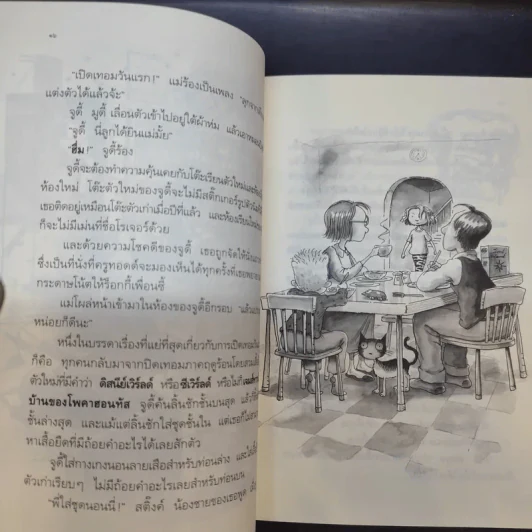 ๑๖
"เปิดเทอมวันแรก!" แม่ร้องเป็นเพลง
แต่งตัวได้แล้วจ้ะ"
จูดี้ มูดี้ เลื่อนตัวเข้าไปอยู่ใต้ผ้าห่ม แล้วเอาหมอน
"จูดี้ นี่ลูกได้ยินแม่มั้ย"
"ฮึ่ม!" จูดี้ร้อง
จูดี้จะต้องทำความคุ้นเคยกับโต๊ะเรียนตัวใหม่และ
ห้องใหม่ โต๊ะตัวใหม่ของจูดี้จะไม่มีสติ๊กเกอร์รูป
เธอติดอยู่เหมือนโต๊ะตัวเก่าเมื่อปีที่แล้ว และห้องเรียน
ก็จะไม่มีเม่นที่ชื่อโรเจอร์ด้วย
และด้วยความโชคดีของจูดี้ เธอถูกจัดให้นั่ง
ซึ่งเป็นที่นั่งที่ครูทอดด์จะมองเห็นได้ทุกครั้งที่เธอ
กระดาษโน้ตให้ร็อกกี้เพื่อนซี้
แม่โผล่หน้าเข้ามาในห้องของจูดี้อีกรอบ
หน่อยก็ดีนะ"
หนึ่งในบรรดาเรื่องที่แย่ที่สุดเกี่ยวกับการเปิดเทอม
ก็คือ ทุกคนกลับมาจากปิดเทอมภาคฤดูร้อนโดย
ตัวใหม่ที่มีคำว่า ดิสนีย์เวิร์ลด์ หรือซีเวิร์ลด์ หรือไม่ก็
บ้านของโพคาฮอนทัส จูดี้ค้นลิ้นชักชั้นบนสุด แล้ว
ชั้นล่างสุด และแม้แต่ลิ้นชักใส่ชุดชั้นใน แต่เธอก็ไม่
หาเสื้อยืดที่มีถ้อยคำอะไรได้เลยสักตัว
จูดี้ใส่กางเกงนอนลายเสือสำหรับท่อนล่าง และ
ตัวเก่าเรียบๆ ไม่มีถ้อยคำอะไรเลยสำหรับท่อนบน
"พี่ใส่ชุดนอนนี่!" สติ๊งค์ น้องชายของเธอพูด